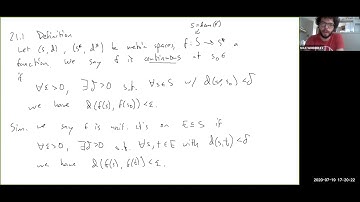 S = dom(f)
21.1 Definition
Let (S, d), (S*, d*) be metric spaces, f: S → S* a
function. We say f is continuous at s₀ ∈
if
∀ε>0, ∃δ>0 s.t. ∀s∈S w/ d(s,s₀)<δ
we have d(f(s), f(s₀))<ε.
Sim. we say f is unif. cts on E⊆S if
∀ε>0, ∃δ>0 s.t. ∀s,t∈E with d(s,t)<δ
we have d(f(s), f(t))<ε.
2020-07-10 17:20:22